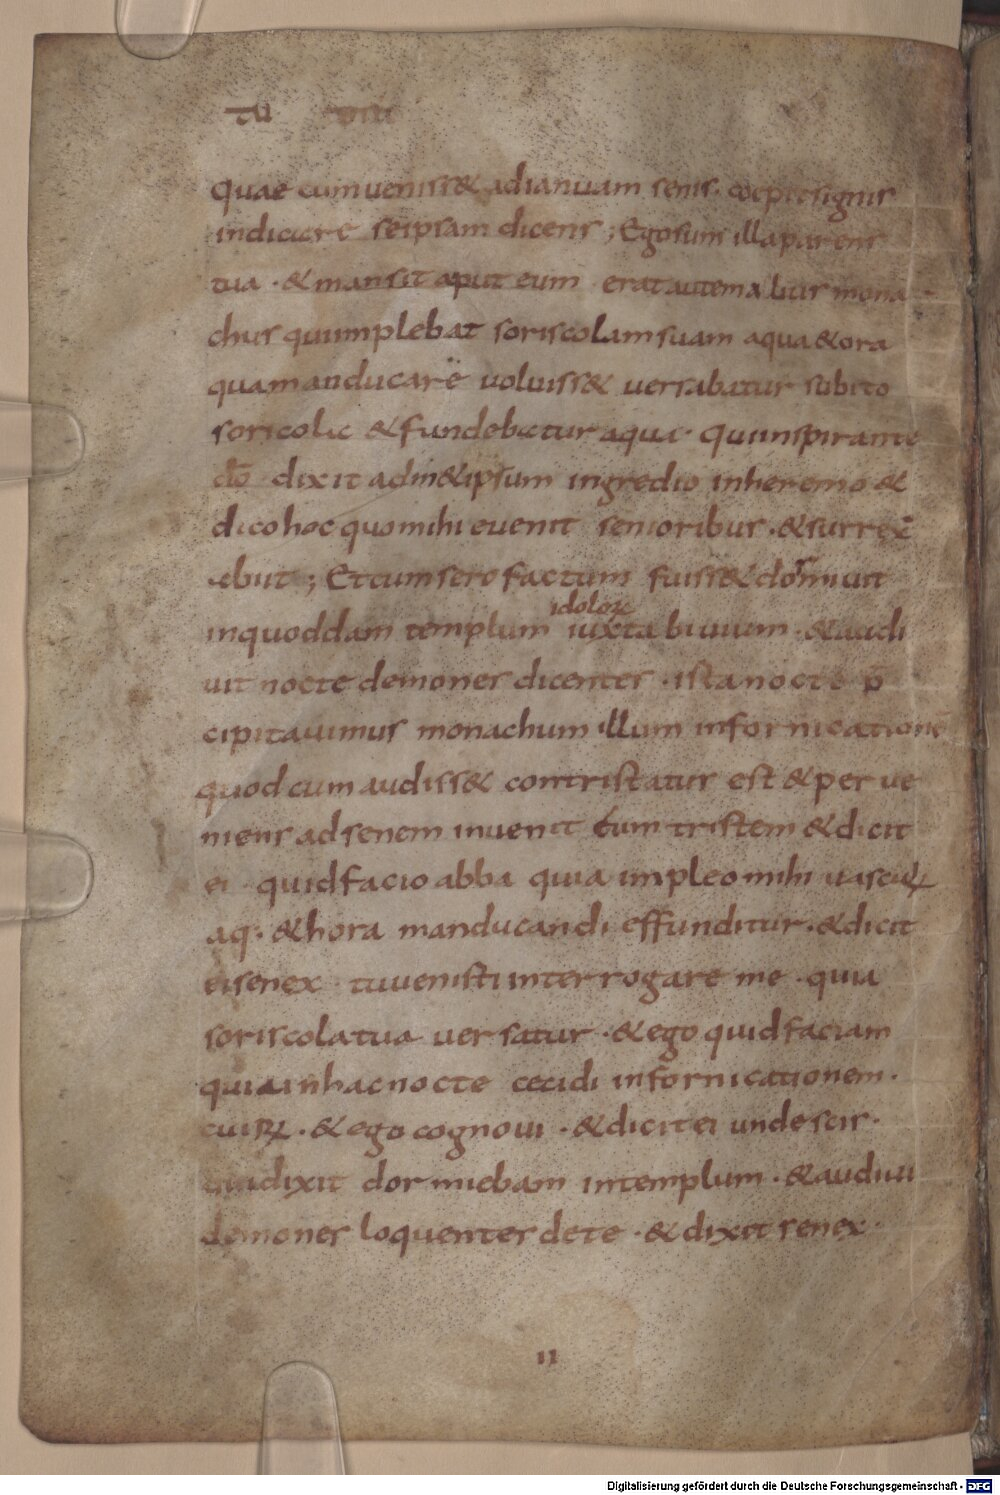 tu
quae cum veniss& adianuam senis. coepit signis
indicare seipsam dicens ; Ego sum illa parens
tua . & mansit aput eum . erat autem alius mona
chus qui implebat soriscolam suam aqua & ora
qua manducare voluiss& versabatur subito
soriscola & fundebatur aqua . qui inspirante
dō dixit ad m&ipsum ingredio inheremo &
dico hoc quo mihi evenit senioribus . & surrex
; Et cum sero factum fuiss& dormivit
inquoddam templum idolorū iuxta bivium . & audi
vit nocte demones dicentes . ista nocte p̄
cipitavimus monachum illum infornicationē
quod cum audiss& contristatus est & per ve
niens ad senem invenit eum tristem & dicit
ei . quid facio abba quia impleo mihi vasculū
aq; & hora manducandi effunditur . & dicit
ei senex . tu venisti interrogare me . quia
soriscola tua versatur . & ego quid faciam
quia inhac nocte cecidi infornicationem .
. & ego cognovi . & dicit ei unde scis .
dixit dormiebam intemplum . & audivi
demones loquentes de te . & dixit senex .
11
Digitalisierung gefördert durch die Deutsche Forschungsgemeinschaft - DFG